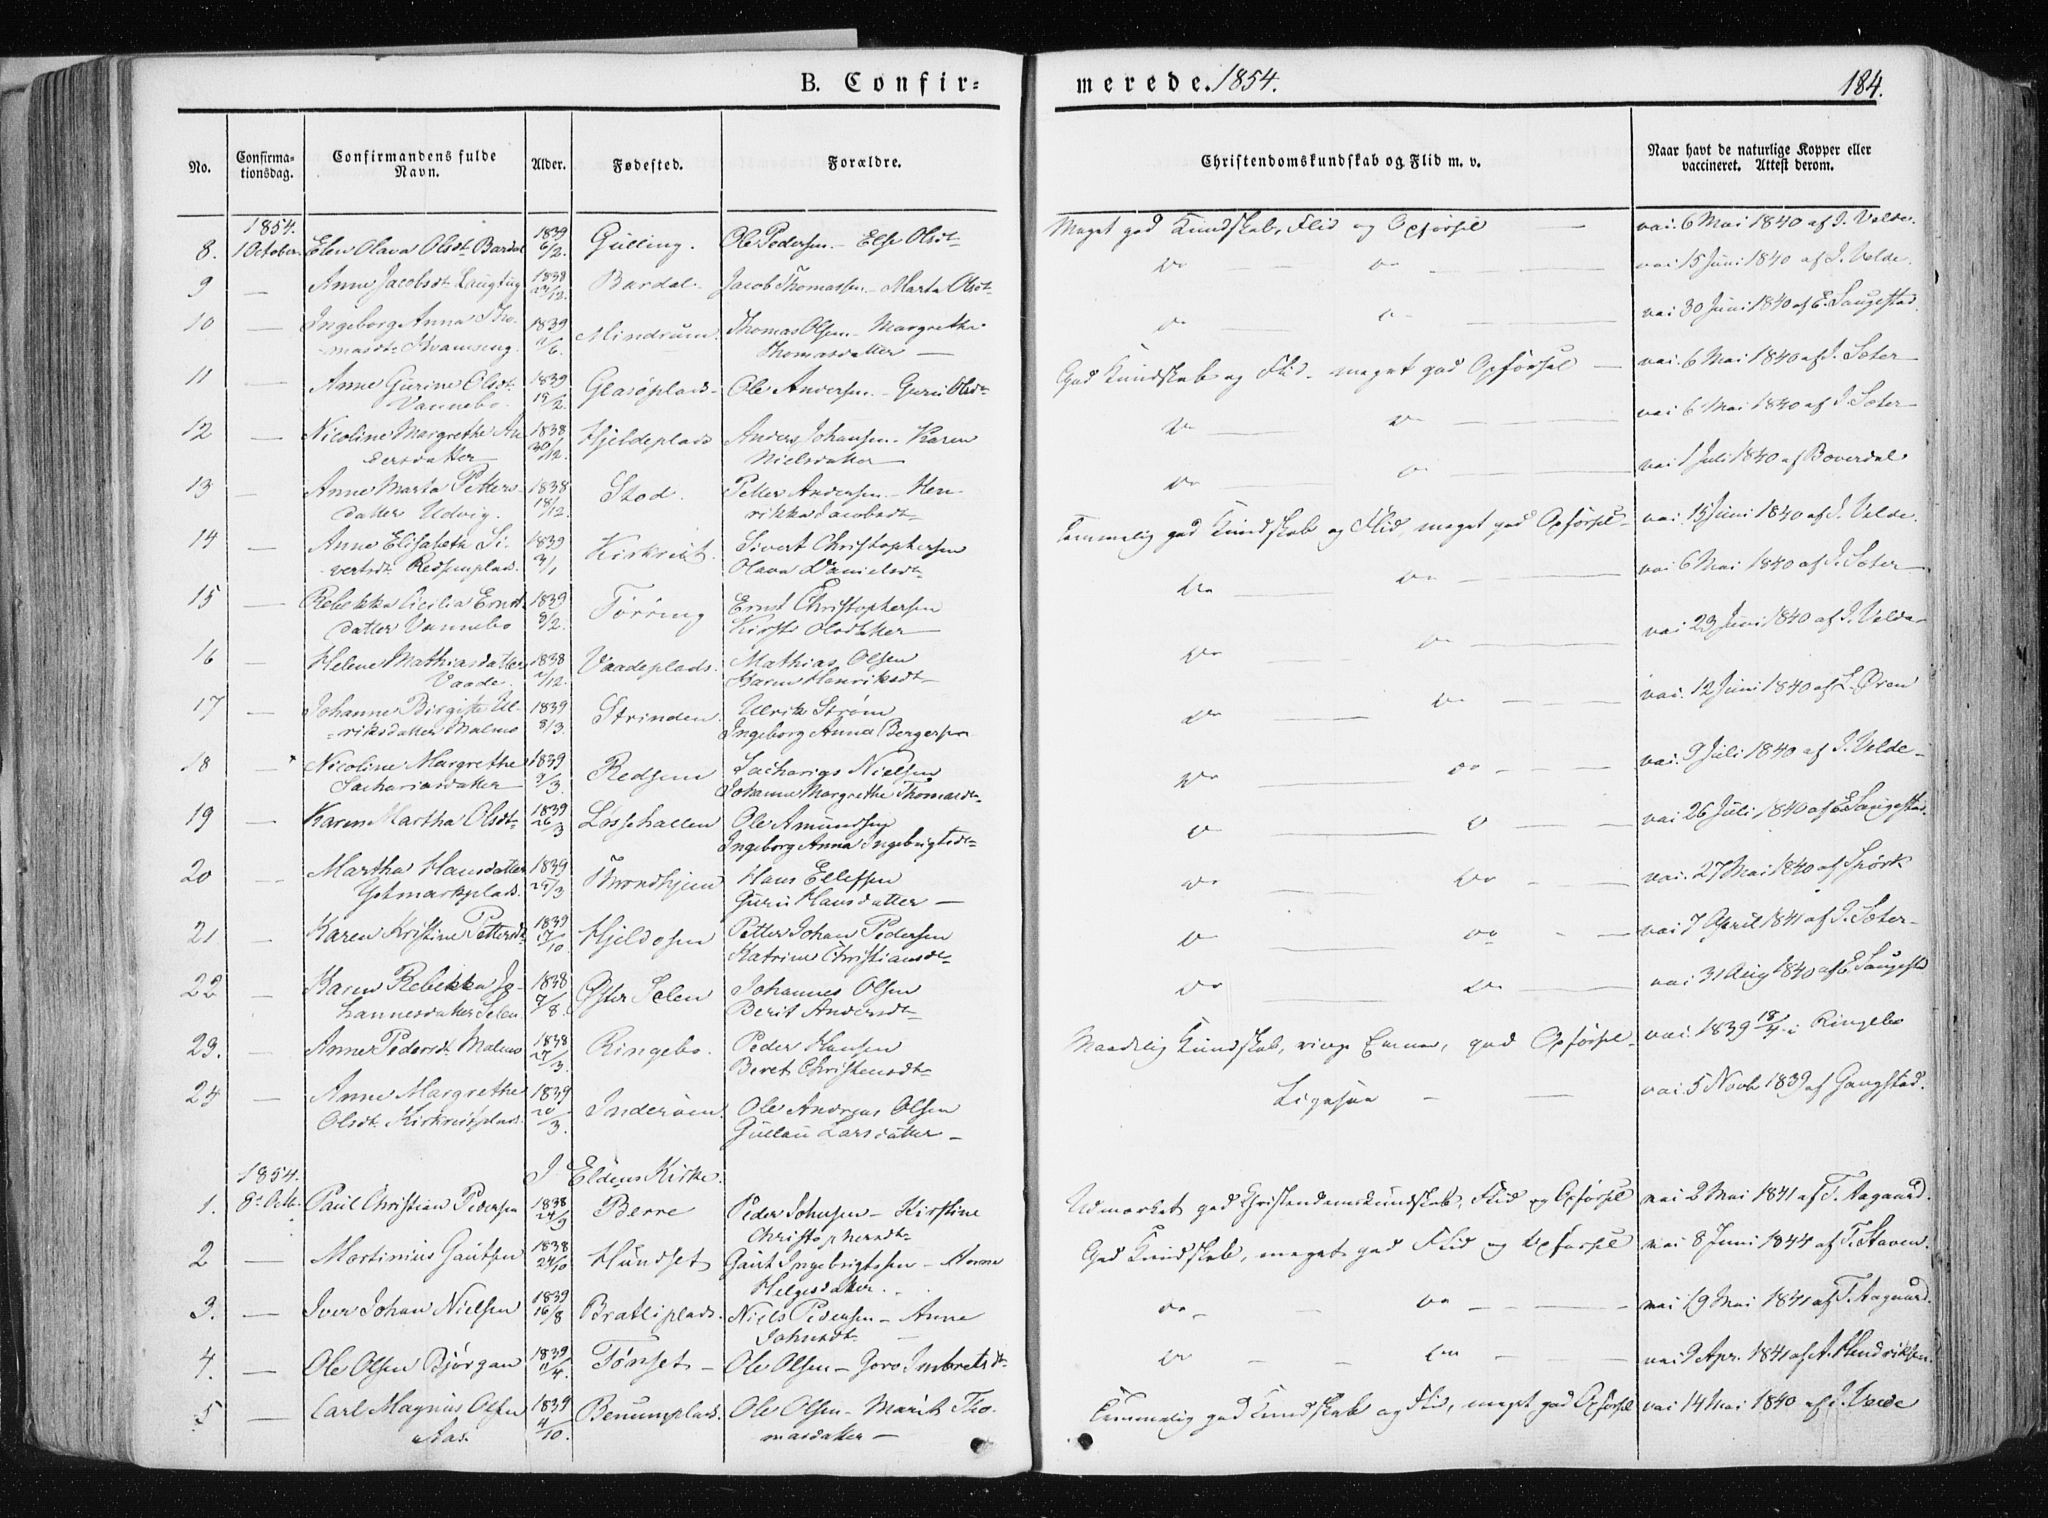 B. Confirmerede. 1854.
184.
No. Confirmationsdag. Confirmandens fulde Navn. Alder. Fødested. Forældre. Christendomskundskab og Flid m. v. Naar havt de naturlige Kopper eller vaccineret. Attest derom.
1854.
8. 1 October Elen Olava Olsdt. Bardal 1839 6/2. Gulling. Ole Pedersen - Else Olsdt- Meget god Kundskab, Flid og Opførsel vac. 6 Mai 1840 af J. Velde.
9 — Anne Jacobsdt 1838 Bardal- Jacob Thomassen - Marta Olsdt- Do — Do — vac 15 Juni 1840 af J. Velde.
10 — Ingeborg Anna Thomasdt. Kvamseng 1839 Mindrum. Thomas Olsen - Margrethe Thomasdatter — Do — Do — vac 30 Juni 1840 af E. Saugestad.
11 — Anne Gurine Olsdt. Vannebo. 1839 Glasøplads- Ole Andersen - Guru Olsdt- God Kundskab og Flid - meget god Opførsel — vac. 6 Mai 1840 af J. Soter
12 — Nicoline Margrethe Andersdatter 1838 30/12. Hjeldeplads Anders Johansen - Karen Nielsdatter Do — Do — vac 6 Mai 1840 af J. Soter
13 — Anne Marta Pettersdatter Udvig. 1838 18/12. Stod. Petter Andersen - Henrikka Jacobsdt- Do — Do — vac 1 Juli 1840 af Boverdal
14 — Anne Elisabeth Sivertsdt. Redsemplads. 1839 3/1 Kirkreit. Sivert Christophersen Olava Danielsdt- Temmelig god Kundskab og Flid, meget god Opførsel- vac. 15 Juni 1840 af J. Velde.
15 — Rebekka Cicilia Ernstdatter Vannebo 1839 8/2. Tørring Ernst Christophersen Kirsti Olsdatter Do — Do — vac 6 Mai 1840 af J. Soter
16 — Helene Mathiasdatter Vaade. 1838 Vaadeplads. Mathias Olsen Karen Henriksdt- Do — Do — vac 23 Juni 1840 af J. Velde-
17 — Johanne Birgitte Ulriksdatter Malmo 1839 8/3. Strinden. Ulrik Strøm Ingeborg Anna Bergersen Do — Do — vac. 12 Juni 1840 af L. Øren
18 — Nicoline Margrethe Sachariasdatter 1839 Redsem Sacharias Nielsen Johanne Margrethe Thomasdt- Do — Do — vac. 9 Juli 1840 af J. Velde-
19 — Karen Martha Olsdt- 1839 26/3 Løsshallen Ole Amundsen Ingeborg Anna Ingebrigtsdt- Do — Do — vac 26 Juli 1840 af E. Saugestad.
20 — Martha Hansdatter 1839 25/3 Throndhjem Hans Ellefsen Guru Hansdatter — Do — Do — vac. 27 Mai 1840 af Spørk
21 — Karen Kristine Pettersdt 1839 17/10 Hjeldosen Petter Johan Pedersen Katrine Christiansdt- Do — Do — vac 7 April 1841 af J. Soter-
22 — Karen Rebekka Johannesdatter Selen 1838 Øster Selen Johannes Olsen Berit Andersdt- Do — Do — vac 31 Aug 1840 af E. Saugestad
23. — Anne Pedersdt. Malmo 1838 27/3. Ringebo. Peder Hansen Beret Christensdt- Maadelig Kundskab, ringe Evner, god Opførsel- vac. 1839 18/4 i Ringebo
24 — Anne Margrethe Olsdt. Kirkreitplads. 1839 20/3. Inderøen. Ole Andreas Olsen Gullau Larsdatter — Ligesaa — vac 5 Novb 1839 af Gangstad.
1854. I Eldens Kirke.
1. 8de Octb. Paul Christian Pedersen 1838 Berre Peder Johnsen - Kirstine Christophersdt- Udmærket god Christendomskundskab, Flid og Opførsel vac 2 Mai 1841 af T. Aagaard.
2 — Martinius Gautsen 1838 24/10 Hundset Gaut Ingebrigtssen - Helgesdatter. God Kundskab, meget god Flid og Opførsel vac 8 Juni 1844 af T. Staven.
3. — Iver Johan Nielsen 1839 16/8 Bratliplads. Niels Pedersen - Anne Johnsdt- Do — Do — vac 19 Mai 1841 af T. Aagaard.
4. — Ole Olsen Bjørgan 1839 Tønset- Ole Olsen - Goro Imbretsdt- Do — Do — vac 9 Apr. 1841 af A. Hendriksen.
5 — Carl Magnus Olsen Aas. 1839 4/10. Benumplads. Ole Olsen - Marit Thomasdatter — Temmelig god Kundskab og Flid, meget god Opførsel vac 14 Mai 1840 af J. Velde